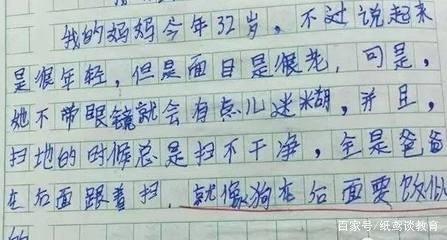 我的妈妈今年32岁，不过说起来
是很年轻，但是面目是很老，可是，
她不带眼镜就会有点儿迷糊，并且，
扫地的时候总是扫不干净，全是爸爸
在后面跟着扫，就像狗在后面要饭似
的
百家号/纸鸢谈教育